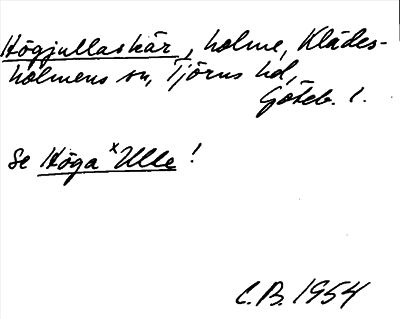 Högjullaskär, holme, Klädes-
holmens sn, Tjörns hd,
Göteb. l.
Se Höga ˣUlle!
C.B. 1954